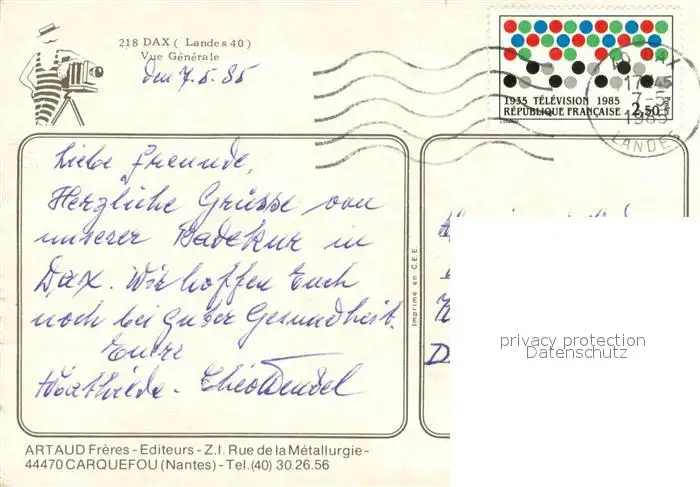 218 DAX ( Landes 40 )
Vue Générale
den 7.5.85
1935 TÉLÉVISION 1985
RÉPUBLIQUE FRANÇAISE 2,50
40
17-45
7-5
1985
LANDES
Liebe Freunde,
Herzliche Grüsse von
unserer Badekur in
Dax. Wir hoffen Euch
noch bei guter Gesundheit.
Eure
Mathilde - Theo Wendel
Imprimé en C.E.E.
privacy protection
Datenschutz
ARTAUD Frères - Editeurs - Z.I. Rue de la Métallurgie -
44470 CARQUEFOU (Nantes) - Tel. (40) 30.26.56